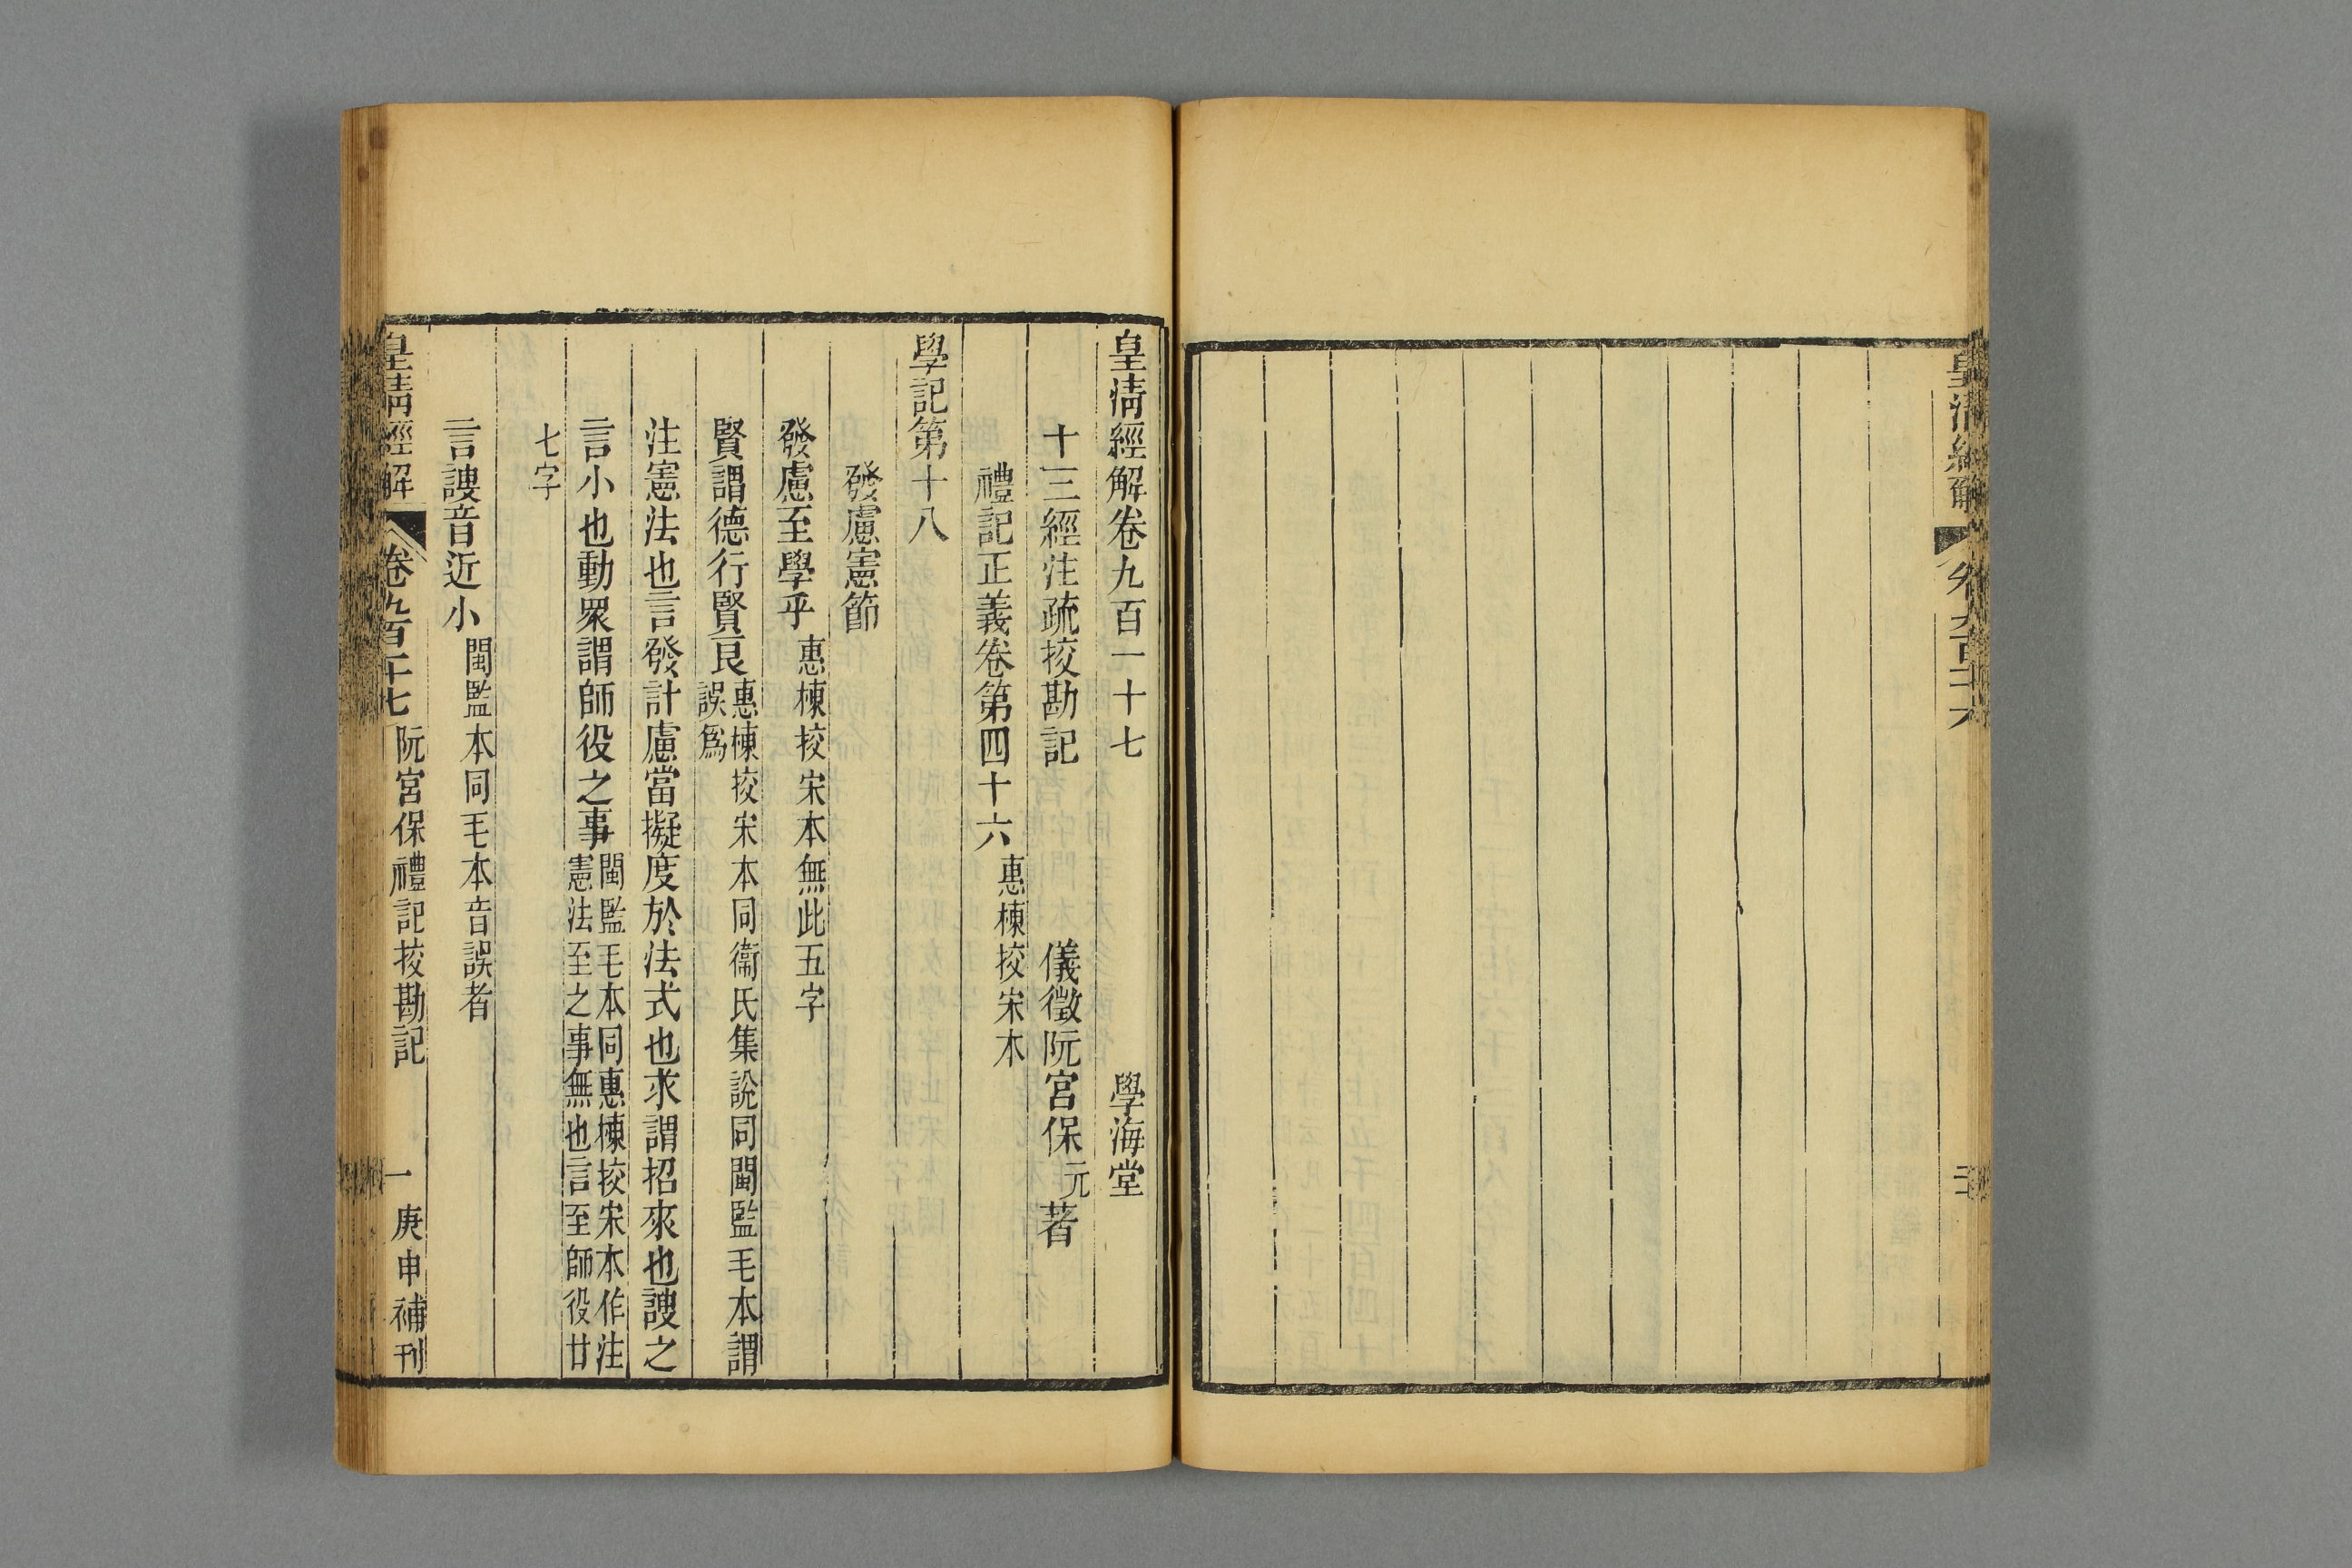 皇清經解
皇清經解卷九百一十七　學海堂
十三經注疏挍勘記　儀徵阮宮保元著
禮記正義卷第四十六惠棟挍宋本
學記第十八
發慮憲節
發慮至學乎惠棟挍宋本無此五字
賢謂德行賢良惠棟挍宋本同衞氏集說同閩監毛本謂誤爲
注憲法也言發計慮當擬度於法式也求謂招來也謏之
言小也動衆謂師役之事閩監毛本同惠棟挍宋本作注憲法至之事無也言至師役廿
七字
言謏音近小閩監本同毛本音誤者
皇清經解　卷九百一十七　阮宮保禮記挍勘記　一　庚申補刊